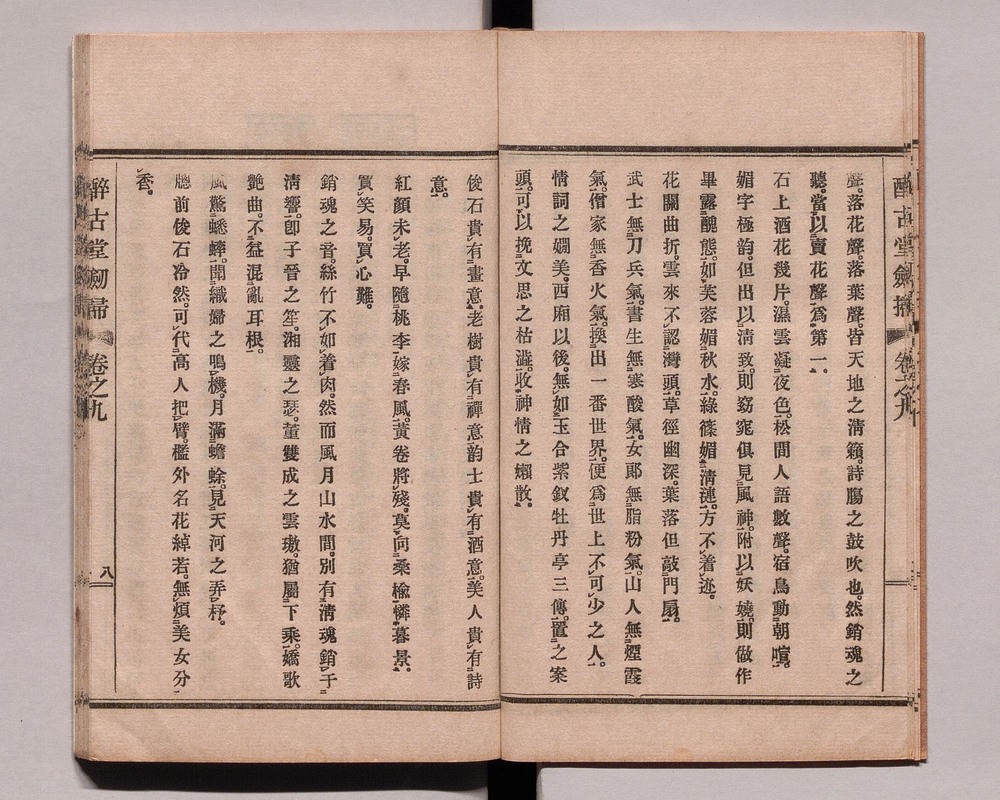 聲。落花聲。落葉聲。皆天地之淸籟。詩膓之鼓吹也。然銷魂之
聽。當以賣花聲爲第一。
石上酒花幾片。濕雲凝夜色。松間人語數聲。宿鳥動朝喧。
媚字極韵。但出以淸致。則窈窕俱見風神。附以妖嬈。則做作
畢露醜態。如芙蓉媚秋水。綠篠媚淸漣。方不着迹。
花關曲折。雲來不認灣頭。草徑幽深。葉落但敲門扇。
武士無刀兵氣。書生無寒酸氣。女郞無脂粉氣。山人無煙霞
氣。僧家無香火氣。換出一番世界。便爲世上不可少之人。
情詞之嫺美。西厢以後。無如玉合紫釵牡丹亭三傳。置之案
頭。可以挽文思之枯澁。收神情之嬾散。
俊石貴有畫意。老樹貴有禪意。韵士貴有酒意。美人貴有詩
意。
紅顏未老。早隨桃李嫁春風。黃卷將殘。莫向桑楡憐暮景。
買笑易。買心難。
銷魂之音。絲竹不如着肉。然而風月山水間。別有淸魂銷于
淸響。卽子晉之笙。湘靈之瑟。董雙成之雲璈。猶屬下乘。嬌歌
艷曲。不益混亂耳根。
風驚蟋蟀。聞織婦之鳴機。月滿蟾蜍。見天河之弄杼。
牕前俊石冷然。可代高人把臂。檻外名花綽若。無煩美女分
香。
醉古堂劒掃 卷之九
八